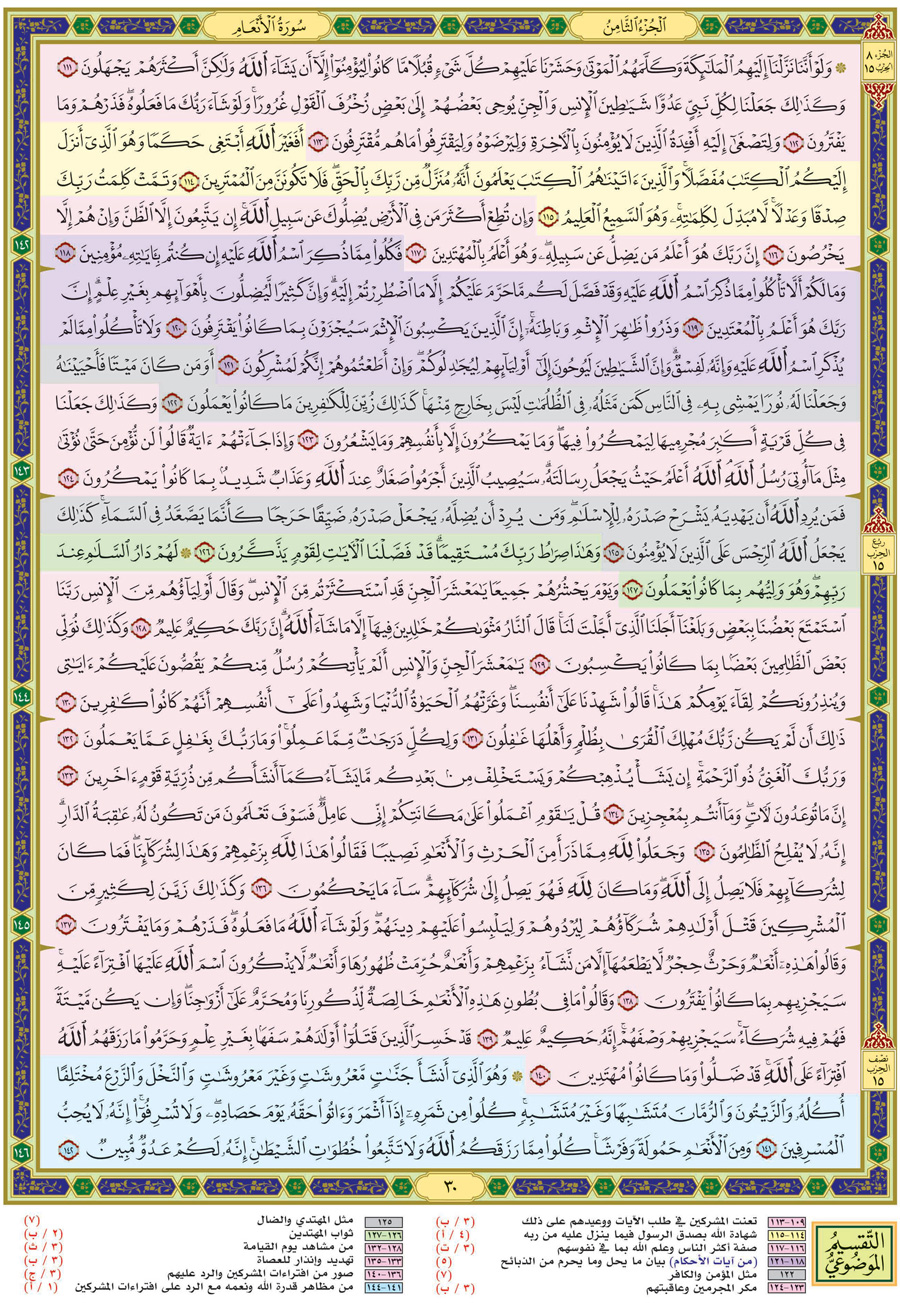 الجُزْءُ الثَّامِنُ
سُورَةُ الأَنْعَامِ
الجُزء ٨
الحِزب ١٥
۞ وَلَوْ أَنَّنَا نَزَّلْنَا إِلَيْهِمُ الْمَلَٰٓئِكَةَ وَكَلَّمَهُمُ الْمَوْتَىٰ وَحَشَرْنَا عَلَيْهِمْ كُلَّ شَىْءٍ قُبُلًا مَّا كَانُوا۟ لِيُؤْمِنُوٓا۟ إِلَّآ أَن يَشَآءَ اللَّهُ وَلَٰكِنَّ أَكْثَرَهُمْ يَجْهَلُونَ ١١١
وَكَذَٰلِكَ جَعَلْنَا لِكُلِّ نَبِىٍّ عَدُوًّا شَيَٰطِينَ الْإِنسِ وَالْجِنِّ يُوحِى بَعْضُهُمْ إِلَىٰ بَعْضٍ زُخْرُفَ الْقَوْلِ غُرُورًا وَلَوْ شَآءَ رَبُّكَ مَا فَعَلُوهُ فَذَرْهُمْ وَمَا
يَفْتَرُونَ ١١٢ وَلِتَصْغَىٰٓ إِلَيْهِ أَفْـِٔدَةُ الَّذِينَ لَا يُؤْمِنُونَ بِالْـَٔاخِرَةِ وَلِيَرْضَوْهُ وَلِيَقْتَرِفُوا۟ مَا هُم مُّقْتَرِفُونَ ١١٣ أَفَغَيْرَ اللَّهِ أَبْتَغِى حَكَمًا وَهُوَ الَّذِىٓ أَنزَلَ
إِلَيْكُمُ الْكِتَٰبَ مُفَصَّلًا وَالَّذِينَ ءَاتَيْنَٰهُمُ الْكِتَٰبَ يَعْلَمُونَ أَنَّهُۥ مُنَزَّلٌ مِّن رَّبِّكَ بِالْحَقِّ فَلَا تَكُونَنَّ مِنَ الْمُمْتَرِينَ ١١٤ وَتَمَّتْ كَلِمَتُ رَبِّكَ
صِدْقًا وَعَدْلًا لَّا مُبَدِّلَ لِكَلِمَٰتِهِۦ وَهُوَ السَّمِيعُ الْعَلِيمُ ١١٥ وَإِن تُطِعْ أَكْثَرَ مَن فِى الْأَرْضِ يُضِلُّوكَ عَن سَبِيلِ اللَّهِ إِن يَتَّبِعُونَ إِلَّا الظَّنَّ وَإِنْ هُمْ إِلَّا
يَخْرُصُونَ ١١٦ إِنَّ رَبَّكَ هُوَ أَعْلَمُ مَن يَضِلُّ عَن سَبِيلِهِۦ وَهُوَ أَعْلَمُ بِالْمُهْتَدِينَ ١١٧ فَكُلُوا۟ مِمَّا ذُكِرَ اسْمُ اللَّهِ عَلَيْهِ إِن كُنتُم بِـَٔايَٰتِهِۦ مُؤْمِنِينَ ١١٨
١٤٢
وَمَا لَكُمْ أَلَّا تَأْكُلُوا۟ مِمَّا ذُكِرَ اسْمُ اللَّهِ عَلَيْهِ وَقَدْ فَصَّلَ لَكُم مَّا حَرَّمَ عَلَيْكُمْ إِلَّا مَا اضْطُرِرْتُمْ إِلَيْهِ وَإِنَّ كَثِيرًا لَّيُضِلُّونَ بِأَهْوَآئِهِم بِغَيْرِ عِلْمٍ إِنَّ
رَبَّكَ هُوَ أَعْلَمُ بِالْمُعْتَدِينَ ١١٩ وَذَرُوا۟ ظَٰهِرَ الْإِثْمِ وَبَاطِنَهُۥٓ إِنَّ الَّذِينَ يَكْسِبُونَ الْإِثْمَ سَيُجْزَوْنَ بِمَا كَانُوا۟ يَقْتَرِفُونَ ١٢٠ وَلَا تَأْكُلُوا۟ مِمَّا لَمْ
يُذْكَرِ اسْمُ اللَّهِ عَلَيْهِ وَإِنَّهُۥ لَفِسْقٌ وَإِنَّ الشَّيَٰطِينَ لَيُوحُونَ إِلَىٰٓ أَوْلِيَآئِهِمْ لِيُجَٰدِلُوكُمْ وَإِنْ أَطَعْتُمُوهُمْ إِنَّكُمْ لَمُشْرِكُونَ ١٢١ أَوَمَن كَانَ مَيْتًا فَأَحْيَيْنَٰهُ
وَجَعَلْنَا لَهُۥ نُورًا يَمْشِى بِهِۦ فِى النَّاسِ كَمَن مَّثَلُهُۥ فِى الظُّلُمَٰتِ لَيْسَ بِخَارِجٍ مِّنْهَا كَذَٰلِكَ زُيِّنَ لِلْكَٰفِرِينَ مَا كَانُوا۟ يَعْمَلُونَ ١٢٢ وَكَذَٰلِكَ جَعَلْنَا
فِى كُلِّ قَرْيَةٍ أَكَٰبِرَ مُجْرِمِيهَا لِيَمْكُرُوا۟ فِيهَا وَمَا يَمْكُرُونَ إِلَّا بِأَنفُسِهِمْ وَمَا يَشْعُرُونَ ١٢٣ وَإِذَا جَآءَتْهُمْ ءَايَةٌ قَالُوا۟ لَن نُّؤْمِنَ حَتَّىٰ نُؤْتَىٰ
١٤٣
مِثْلَ مَآ أُوتِىَ رُسُلُ اللَّهِ اللَّهُ أَعْلَمُ حَيْثُ يَجْعَلُ رِسَالَتَهُۥ سَيُصِيبُ الَّذِينَ أَجْرَمُوا۟ صَغَارٌ عِندَ اللَّهِ وَعَذَابٌ شَدِيدٌۢ بِمَا كَانُوا۟ يَمْكُرُونَ ١٢٤
فَمَن يُرِدِ اللَّهُ أَن يَهْدِيَهُۥ يَشْرَحْ صَدْرَهُۥ لِلْإِسْلَٰمِ وَمَن يُرِدْ أَن يُضِلَّهُۥ يَجْعَلْ صَدْرَهُۥ ضَيِّقًا حَرَجًا كَأَنَّمَا يَصَّعَّدُ فِى السَّمَآءِ كَذَٰلِكَ
يَجْعَلُ اللَّهُ الرِّجْسَ عَلَى الَّذِينَ لَا يُؤْمِنُونَ ١٢٥ وَهَٰذَا صِرَٰطُ رَبِّكَ مُسْتَقِيمًا قَدْ فَصَّلْنَا الْـَٔايَٰتِ لِقَوْمٍ يَذَّكَّرُونَ ١٢٦ ۞ لَهُمْ دَارُ السَّلَٰمِ عِندَ
رُبع
الحزب
١٥
رَبِّهِمْ وَهُوَ وَلِيُّهُم بِمَا كَانُوا۟ يَعْمَلُونَ ١٢٧ وَيَوْمَ يَحْشُرُهُمْ جَمِيعًا يَٰمَعْشَرَ الْجِنِّ قَدِ اسْتَكْثَرْتُم مِّنَ الْإِنسِ وَقَالَ أَوْلِيَآؤُهُم مِّنَ الْإِنسِ رَبَّنَا
اسْتَمْتَعَ بَعْضُنَا بِبَعْضٍ وَبَلَغْنَآ أَجَلَنَا الَّذِىٓ أَجَّلْتَ لَنَا قَالَ النَّارُ مَثْوَىٰكُمْ خَٰلِدِينَ فِيهَآ إِلَّا مَا شَآءَ اللَّهُ إِنَّ رَبَّكَ حَكِيمٌ عَلِيمٌ ١٢٨ وَكَذَٰلِكَ نُوَلِّى
بَعْضَ الظَّٰلِمِينَ بَعْضًۢا بِمَا كَانُوا۟ يَكْسِبُونَ ١٢٩ يَٰمَعْشَرَ الْجِنِّ وَالْإِنسِ أَلَمْ يَأْتِكُمْ رُسُلٌ مِّنكُمْ يَقُصُّونَ عَلَيْكُمْ ءَايَٰتِى
وَيُنذِرُونَكُمْ لِقَآءَ يَوْمِكُمْ هَٰذَا قَالُوا۟ شَهِدْنَا عَلَىٰٓ أَنفُسِنَا وَغَرَّتْهُمُ الْحَيَوٰةُ الدُّنْيَا وَشَهِدُوا۟ عَلَىٰٓ أَنفُسِهِمْ أَنَّهُمْ كَانُوا۟ كَٰفِرِينَ ١٣٠
١٤٤
ذَٰلِكَ أَن لَّمْ يَكُن رَّبُّكَ مُهْلِكَ الْقُرَىٰ بِظُلْمٍ وَأَهْلُهَا غَٰفِلُونَ ١٣١ وَلِكُلٍّ دَرَجَٰتٌ مِّمَّا عَمِلُوا۟ وَمَا رَبُّكَ بِغَٰفِلٍ عَمَّا يَعْمَلُونَ ١٣٢
وَرَبُّكَ الْغَنِىُّ ذُو الرَّحْمَةِ إِن يَشَأْ يُذْهِبْكُمْ وَيَسْتَخْلِفْ مِنۢ بَعْدِكُم مَّا يَشَآءُ كَمَآ أَنشَأَكُم مِّن ذُرِّيَّةِ قَوْمٍ ءَاخَرِينَ ١٣٣
إِنَّ مَا تُوعَدُونَ لَـَٔاتٍ وَمَآ أَنتُم بِمُعْجِزِينَ ١٣٤ قُلْ يَٰقَوْمِ اعْمَلُوا۟ عَلَىٰ مَكَانَتِكُمْ إِنِّى عَامِلٌ فَسَوْفَ تَعْلَمُونَ مَن تَكُونُ لَهُۥ عَٰقِبَةُ الدَّارِ
إِنَّهُۥ لَا يُفْلِحُ الظَّٰلِمُونَ ١٣٥ وَجَعَلُوا۟ لِلَّهِ مِمَّا ذَرَأَ مِنَ الْحَرْثِ وَالْأَنْعَٰمِ نَصِيبًا فَقَالُوا۟ هَٰذَا لِلَّهِ بِزَعْمِهِمْ وَهَٰذَا لِشُرَكَآئِنَا فَمَا كَانَ
لِشُرَكَآئِهِمْ فَلَا يَصِلُ إِلَى اللَّهِ وَمَا كَانَ لِلَّهِ فَهُوَ يَصِلُ إِلَىٰ شُرَكَآئِهِمْ سَآءَ مَا يَحْكُمُونَ ١٣٦ وَكَذَٰلِكَ زَيَّنَ لِكَثِيرٍ مِّنَ
الْمُشْرِكِينَ قَتْلَ أَوْلَٰدِهِمْ شُرَكَآؤُهُمْ لِيُرْدُوهُمْ وَلِيَلْبِسُوا۟ عَلَيْهِمْ دِينَهُمْ وَلَوْ شَآءَ اللَّهُ مَا فَعَلُوهُ فَذَرْهُمْ وَمَا يَفْتَرُونَ ١٣٧
١٤٥
وَقَالُوا۟ هَٰذِهِۦٓ أَنْعَٰمٌ وَحَرْثٌ حِجْرٌ لَّا يَطْعَمُهَآ إِلَّا مَن نَّشَآءُ بِزَعْمِهِمْ وَأَنْعَٰمٌ حُرِّمَتْ ظُهُورُهَا وَأَنْعَٰمٌ لَّا يَذْكُرُونَ اسْمَ اللَّهِ عَلَيْهَا افْتِرَآءً عَلَيْهِ
سَيَجْزِيهِم بِمَا كَانُوا۟ يَفْتَرُونَ ١٣٨ وَقَالُوا۟ مَا فِى بُطُونِ هَٰذِهِ الْأَنْعَٰمِ خَالِصَةٌ لِّذُكُورِنَا وَمُحَرَّمٌ عَلَىٰٓ أَزْوَٰجِنَا وَإِن يَكُن مَّيْتَةً
فَهُمْ فِيهِ شُرَكَآءُ سَيَجْزِيهِمْ وَصْفَهُمْ إِنَّهُۥ حَكِيمٌ عَلِيمٌ ١٣٩ قَدْ خَسِرَ الَّذِينَ قَتَلُوٓا۟ أَوْلَٰدَهُمْ سَفَهًۢا بِغَيْرِ عِلْمٍ وَحَرَّمُوا۟ مَا رَزَقَهُمُ اللَّهُ
افْتِرَآءً عَلَى اللَّهِ قَدْ ضَلُّوا۟ وَمَا كَانُوا۟ مُهْتَدِينَ ١٤٠ ۞ وَهُوَ الَّذِىٓ أَنشَأَ جَنَّٰتٍ مَّعْرُوشَٰتٍ وَغَيْرَ مَعْرُوشَٰتٍ وَالنَّخْلَ وَالزَّرْعَ مُخْتَلِفًا
نصف
الحزب
١٥
أُكُلُهُۥ وَالزَّيْتُونَ وَالرُّمَّانَ مُتَشَٰبِهًا وَغَيْرَ مُتَشَٰبِهٍ كُلُوا۟ مِن ثَمَرِهِۦٓ إِذَآ أَثْمَرَ وَءَاتُوا۟ حَقَّهُۥ يَوْمَ حَصَادِهِۦ وَلَا تُسْرِفُوٓا۟ إِنَّهُۥ لَا يُحِبُّ
الْمُسْرِفِينَ ١٤١ وَمِنَ الْأَنْعَٰمِ حَمُولَةً وَفَرْشًا كُلُوا۟ مِمَّا رَزَقَكُمُ اللَّهُ وَلَا تَتَّبِعُوا۟ خُطُوَٰتِ الشَّيْطَٰنِ إِنَّهُۥ لَكُمْ عَدُوٌّ مُّبِينٌ ١٤٢
١٤٦
٣٠
التَّقسِيمُ
المَوضُوعِيُّ
١٠٩-١١٣ تعنت المشركين في طلب الآيات ووعيدهم على ذلك (٣ / ب)
١١٤-١١٥ شهادة الله بصدق الرسول فيما ينزل عليه من ربه (٤ / أ)
١١٦-١١٧ صفة أكثر الناس وعلم الله بما في نفوسهم (٣ / ت)
١١٨-١٢١ (من آيات الأحكام) بيان ما يحل وما يحرم من الذبائح (٥)
١٢٢ مثل المؤمن والكافر (٧)
١٢٣-١٢٤ مكر المجرمين وعاقبتهم (٣ / ب)
١٢٥ مثل المهتدي والضال (٧)
١٢٦-١٢٧ ثواب المهتدين (٢ / ب)
١٢٨-١٣٢ من مشاهد يوم القيامة (٣ / ث)
١٣٣-١٣٥ تهديد وإنذار للعصاة (٣ / ب)
١٣٦-١٤٠ صور من افتراءات المشركين والرد عليهم (٣ / ج)
١٤١-١٤٤ من مظاهر قدرة الله ونعمه مع الرد على افتراءات المشركين (١ / أ)